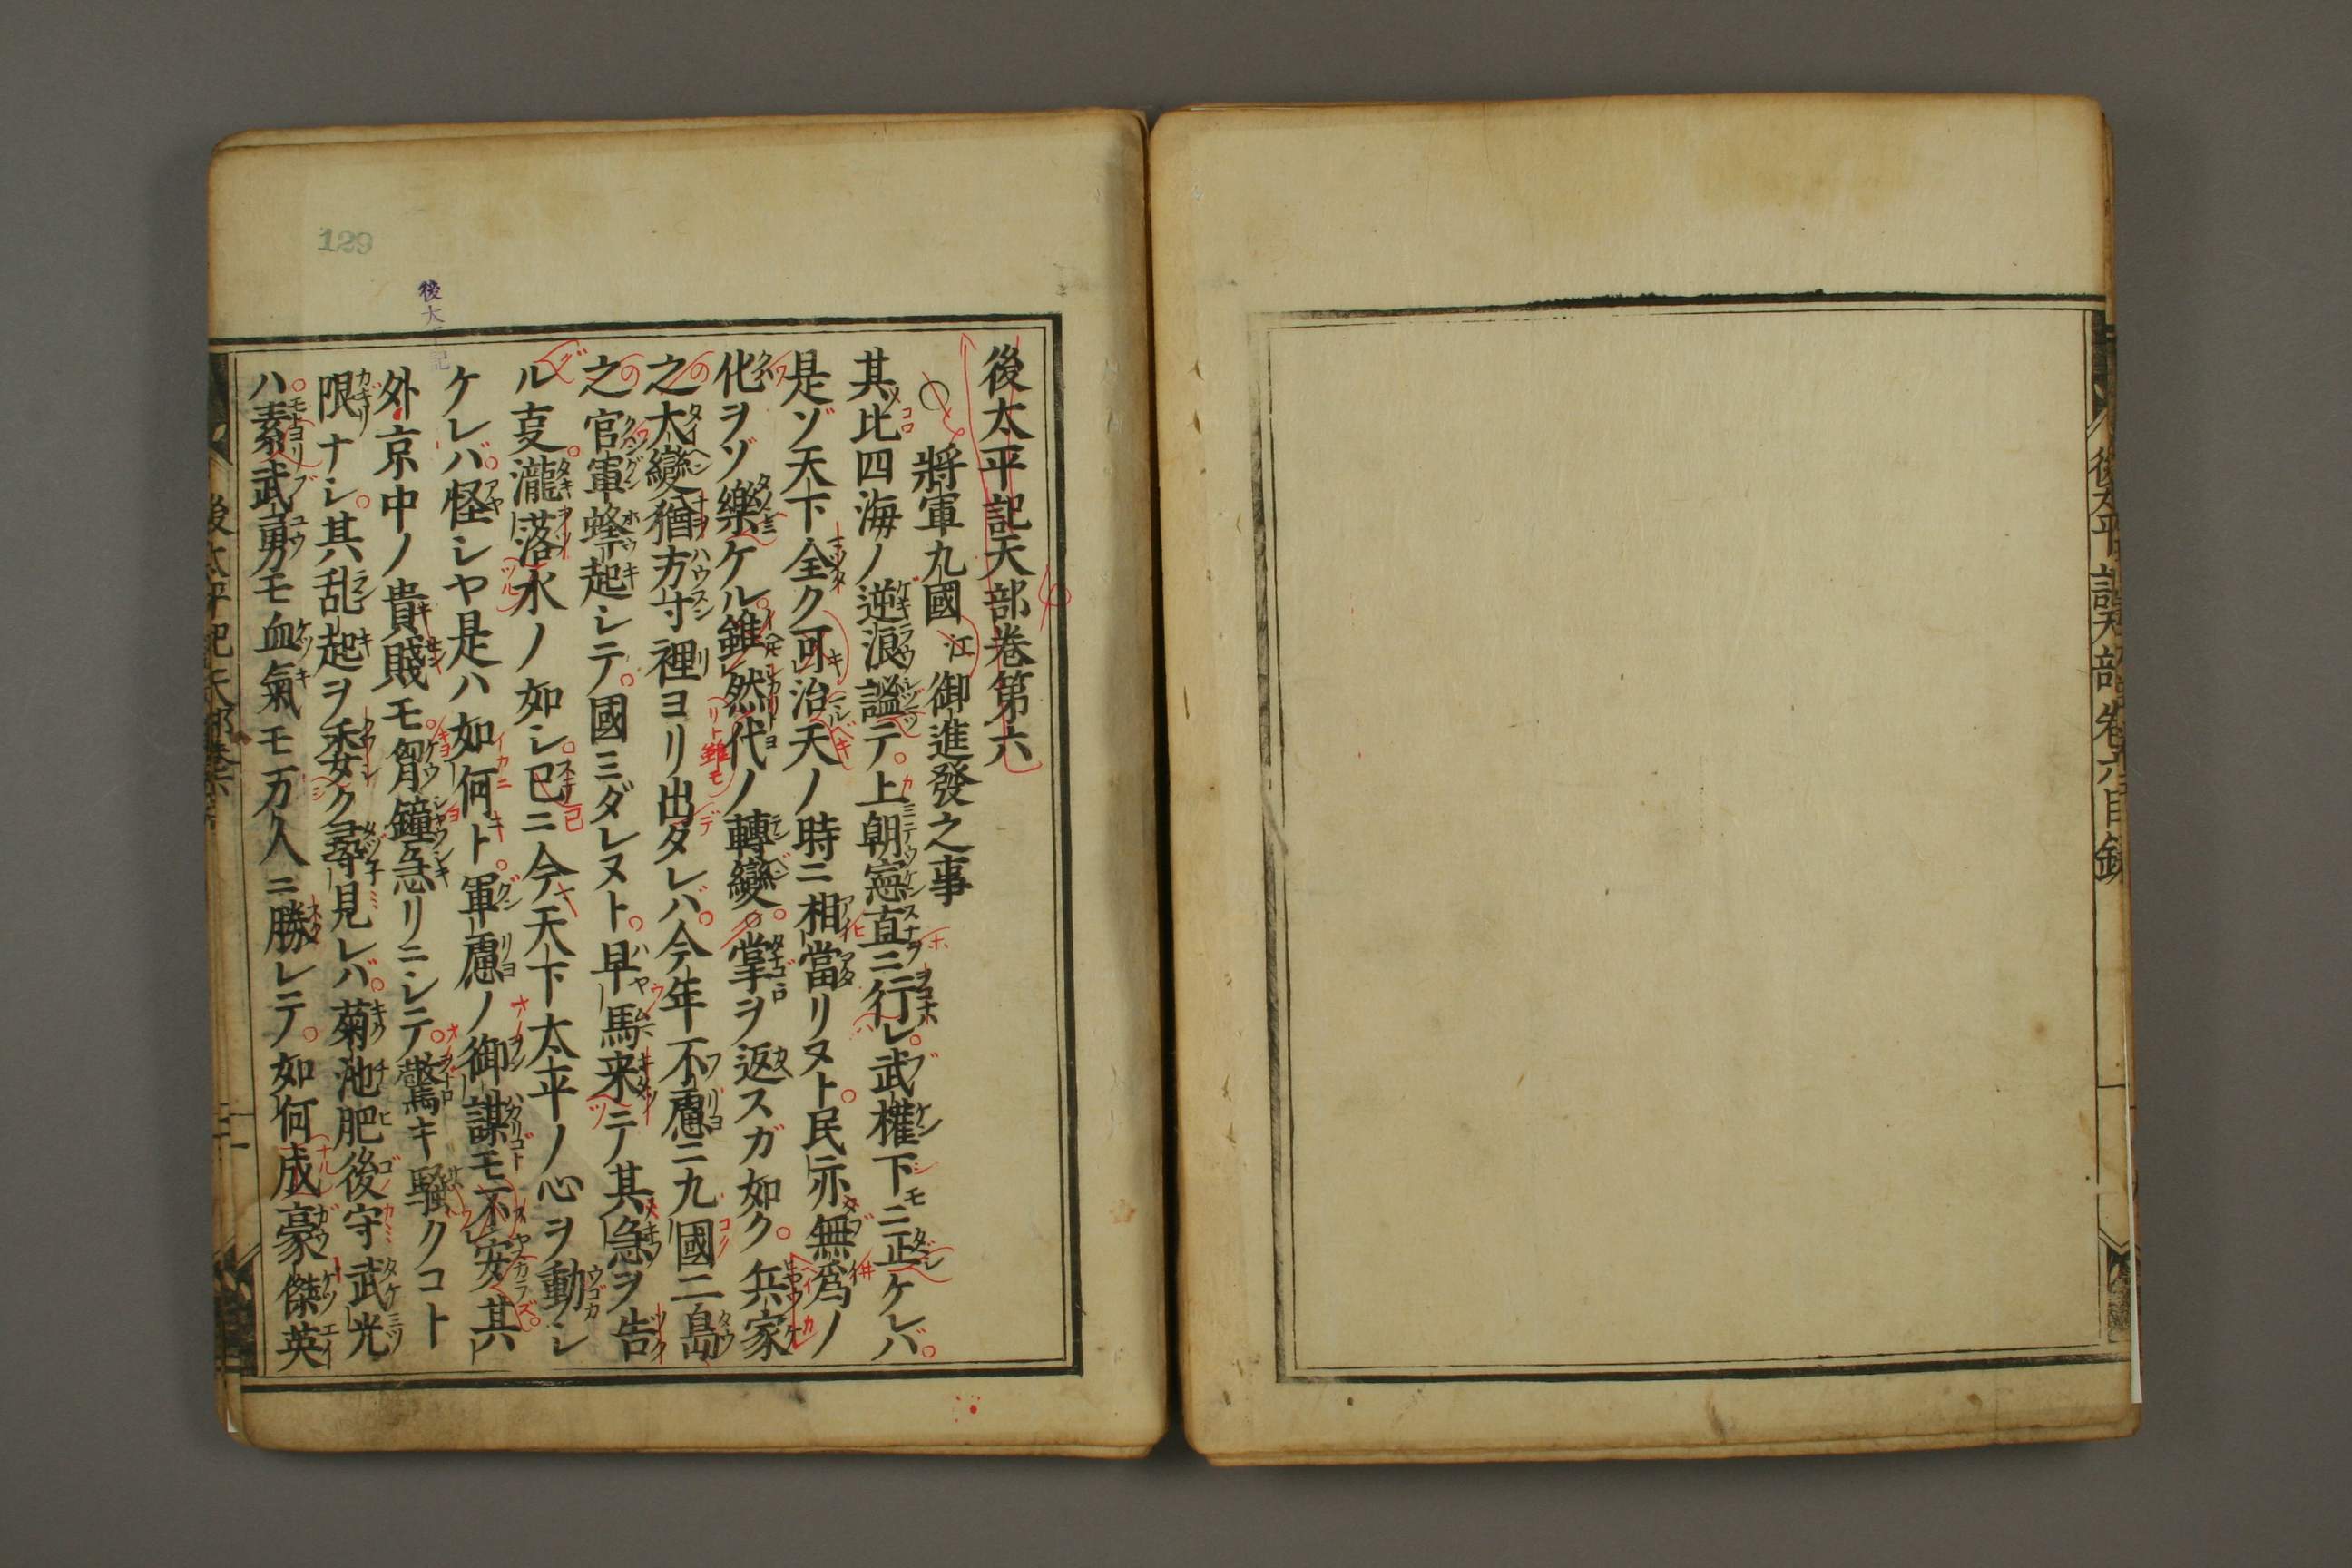 後太平記天部巻六目録
後太平記天部巻第六
將軍九國江御進發之事
其比四海ノ逆浪謐テ上朝憲直ニ行レ武權下ニ正ケレバ
是ゾ天下全ク可治天ノ時ニ相當リヌト民亦無爲ノ
化ヲゾ樂ケル雖然代ノ轉變掌ヲ返スガ如ク兵家
之大變猶方寸裡ヨリ出タレバ今年不慮ニ九國二島
之官軍蜂起シテ國ミダレヌト早馬来テ其急ヲ告
ル叓瀧落水ノ如シ已ニ今天下太平ノ心ヲ動シ
ケレバ怪シヤ是ハ如何ト軍慮ノ御謀モ不安其
外京中ノ貴賤モ曉鐘急リニシテ驚キ騒クコト
限ナシ其乱起ヲ委ク尋見レバ菊池肥後守武光
ハ素武勇モ血氣モ万人ニ勝レテ如何成豪傑英
後太平記天部巻六
129